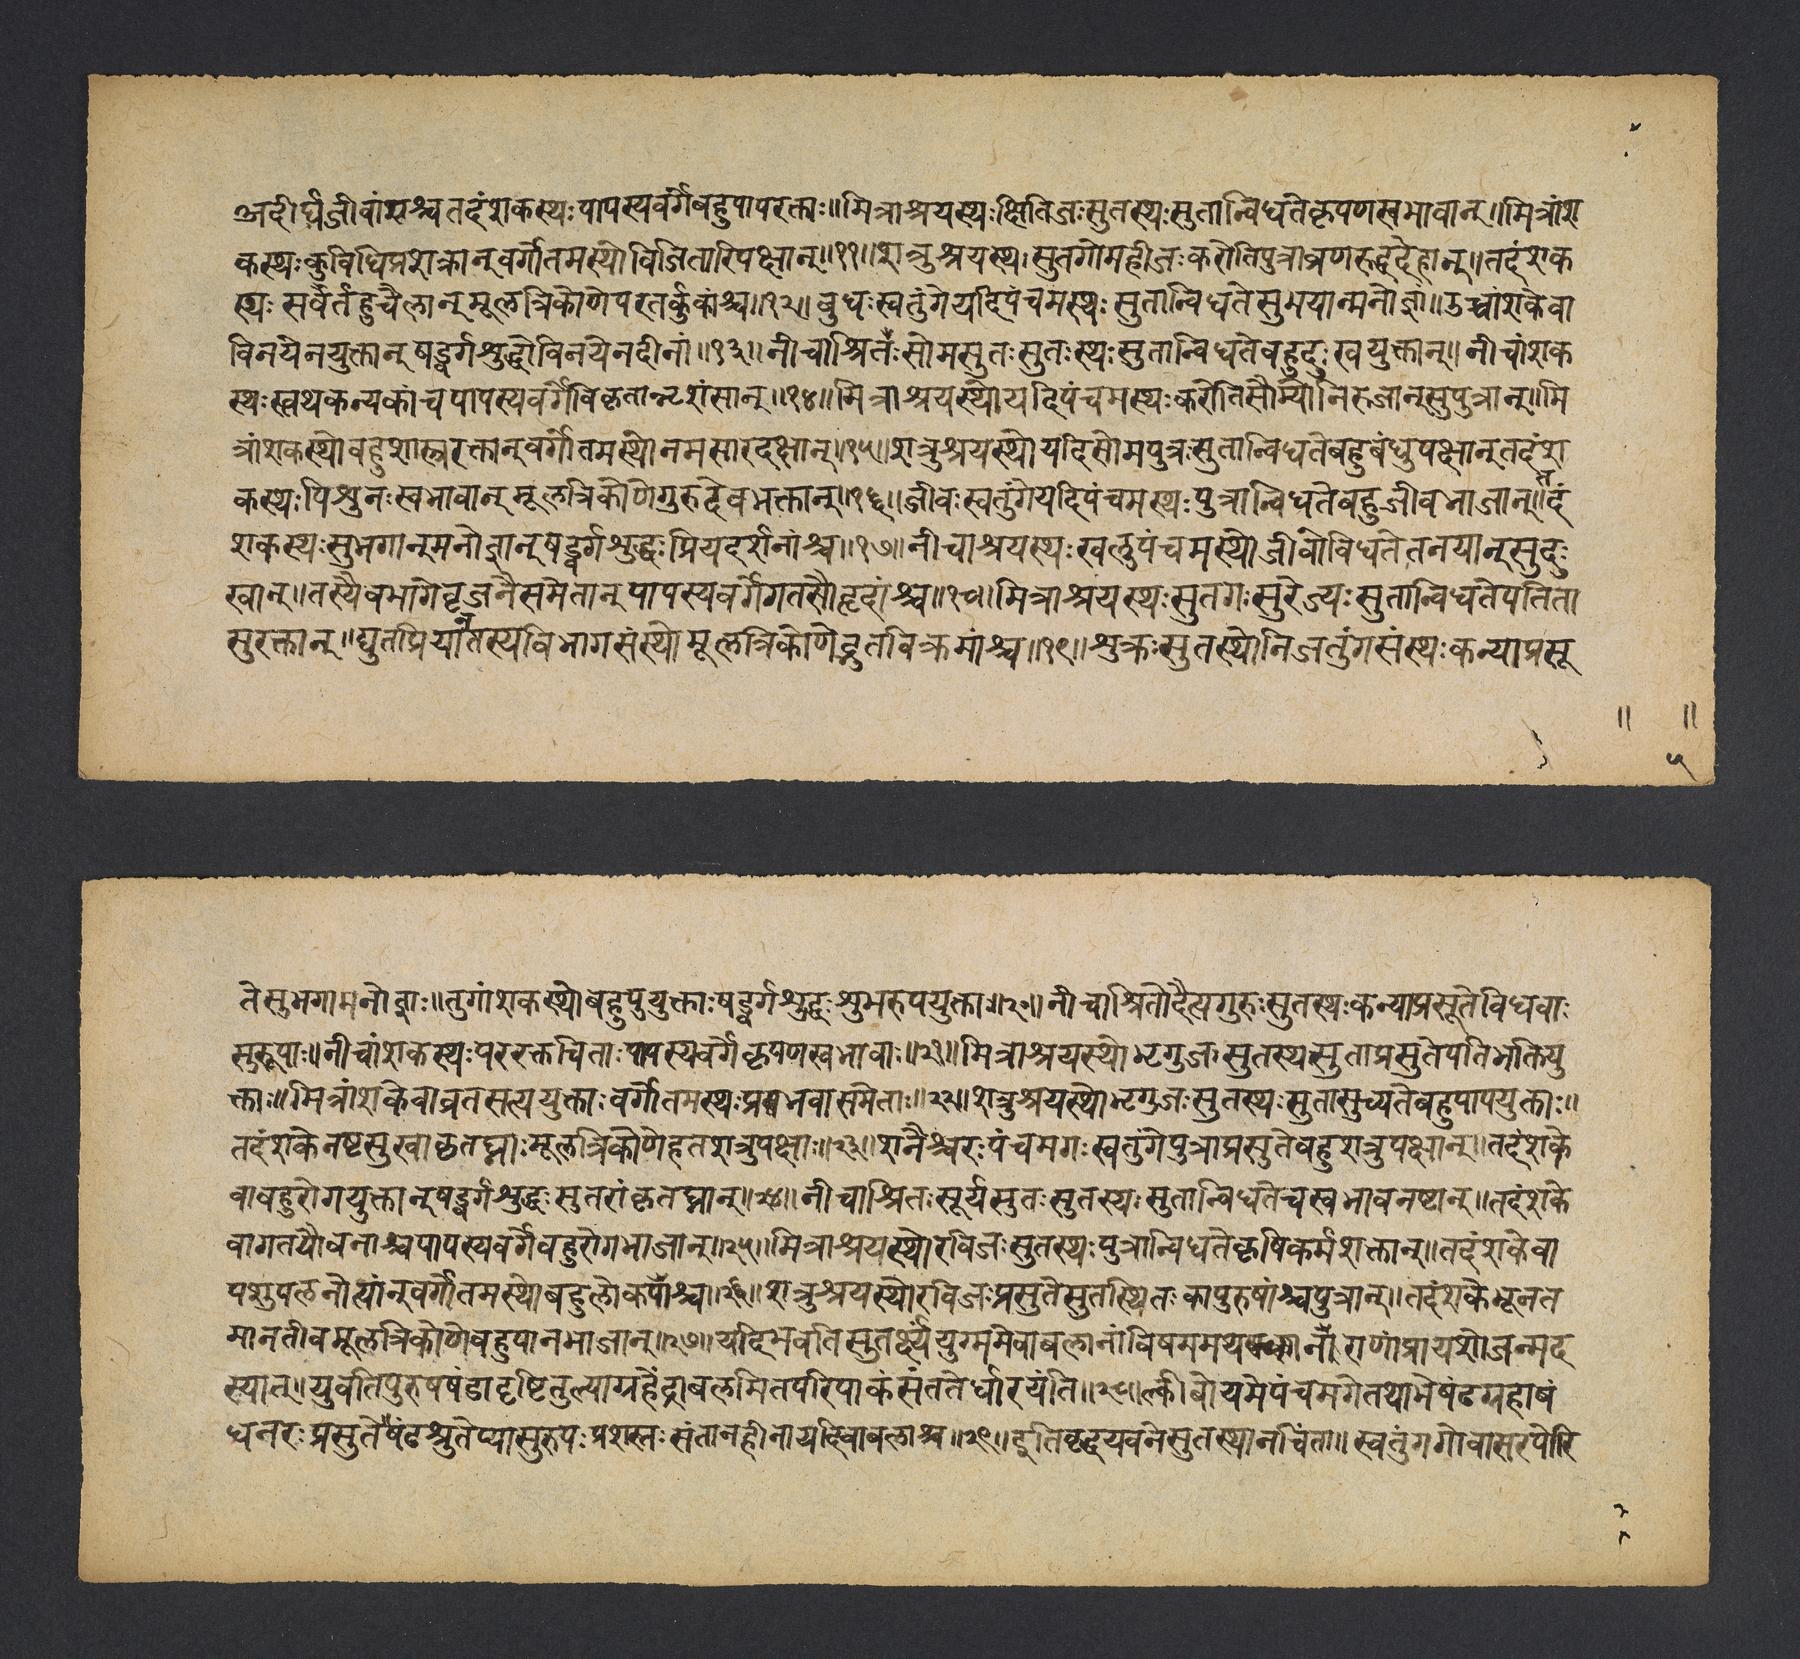 अदीर्घजीवांश्च तदंशकस्थः पापस्यवर्गे बहुपापरक्ताः॥ मित्राश्रयस्थः क्षितिजः सुतस्थः सुतान्विधत्ते कृपणस्वभावान्॥ मित्रांश
कस्थः क्रुविधिप्रशक्तान् वर्गोतमस्थो विजितारिपक्षान्॥११॥ शत्रुश्रयस्थः सुतगो महीजः करोति पुत्रान्व्रणरुद्धदेहान्॥ तदंशक
स्थः सर्वर्तहुचैलान् मूलत्रिकोणे परतर्कुकांश्च॥१२॥ बुधः स्वतुंगे यदि पंचमस्थः सुतान्विधते सुभयान्मनोज्ञां॥ उच्चांशके वा
विनयेन युक्तान् षड्वर्गशुद्धौ विनयेन दीनां॥१३॥ नीचाश्रितः सोमसुतः सुतःस्थः सुतान्विधते बहुदुःखयुक्तान्॥ नीचांशक
स्थः स्वथकन्यकांच पापस्यवर्गे विकृतान्नृशंसान्॥१४॥ मित्राश्रयस्थो यदि पंचमस्थः करोति सौम्यो निरुजान् सुपुत्रान्॥ मि
त्रांशकस्थो बहुशास्त्ररक्तान् वर्गोतमस्थो नमसारदक्षान्॥१५॥ शत्रुश्रयस्थो यदि सोमपुत्रः सुतान्विधते बहुबंधुपक्षान् तदंश
कस्थः पिशुनः स्वभावान् मूलत्रिकोणे गुरुदेवभक्तान्॥१६॥ जीवः स्वतुंगे यदि पंचमस्थः पुत्रान्विधते बहुजीवभाजान्॥ तदं
शकस्थः सुभगान् मनोज्ञान् षड्वर्गशुद्धः प्रियदर्शनांश्च॥१७॥ नीचाश्रयस्थः खलु पंचमस्थो जीवो विधते तनयान् सुदुः
खान्॥ तस्यैव भागे वृजनैसमेतान् पापस्यवर्गे गतसौहृदांश्च॥१८॥ मित्राश्रयस्थः सुतगः सुरेज्यः सुतान्विधते पतिता
सुरक्तान्॥ द्युतप्रियांतस्यविभागसंस्थो मूलत्रिकोणेद्भुतविक्रमांश्च॥१९॥ शुक्रः सुतस्थो निजतुंगसंस्थः कन्याप्रसू
॥ ॥
५
ते सुभगा मनोज्ञाः॥ तुगांशकस्थो बहुपुयुक्ताः षड्वर्गशुद्धः शुभरुपयुक्ता॥२०॥ नीचाश्रितो दैत्यगुरुः सुतस्थः कन्याप्रसूते विधवाः
सुरूपाः॥ नीचांशकस्थः पररक्तचिताः पापस्यवर्गे कृपणस्वभावाः॥२१॥ मित्राश्रयस्थो भृगुजः सुतस्थः सुताप्रसुते पतिभक्तियु
क्ताः॥ मित्रांशके वा व्रतसत्ययुक्ताः वर्गोतमस्थः प्रसभवासमेताः॥२२॥ शत्रुश्रयस्थो भृगुजः सुतस्थः सुतासुच्यते बहुपापयुक्ताः॥
तदंशके नष्टसुखा कृतघ्नाः मूलत्रिकोणे हतशत्रुपक्षाः॥२३॥ शनैश्चरः पंचमगः स्वतुंगे पुत्राप्रसुते बहुशत्रुपक्षान्॥ तदंशके
वा बहुरोगयुक्तान् षड्वर्गशुद्धः सुतरां कृतघ्नान्॥२४॥ नीचाश्रितः सूर्यसुतः सुतस्थः सुतान्विधते च स्वभावनष्टान्॥ तदंशके
वा गतयौवनाश्च पापस्यवर्गे बहुरोगभाजान्॥२५॥ मित्राश्रयस्थो रविजः सुतस्थः पुत्रान्विधते कृषिकर्मशक्तान्॥ तदंशके वा
पशुपलनोत्थांन् वर्गोतमस्थो बहुलोकपांश्च॥२६॥ शत्रुश्रयस्थो रविजः प्रसुते सुतस्थितः कापुरुषांश्च पुत्रान्॥ तदंशके भूनत
मानतीव मूलत्रिकोणे बहुपानभाजान्॥२७॥ यदि भवति सुतर्क्ष्य युग्ममेवाबलानां विषममथ नराणां प्रायशो जन्मद
स्यात्॥ युवतिपुरुषषंडा दृष्टितुल्याग्रहैंद्रा बलमितपरिपाकं संततेर्धारयंति॥२८॥ क्लीबो यमे पंचमगे तथा भे षंढग्रहाषं
धनरः प्रसुते षंढश्रुतेप्यासुरुपः प्रशस्तः संतानहीना यदि वाबलाश्च॥२९॥ इति वृद्धयवने सुतस्थानचिंता॥ स्वतुंगगो वासरपोरि